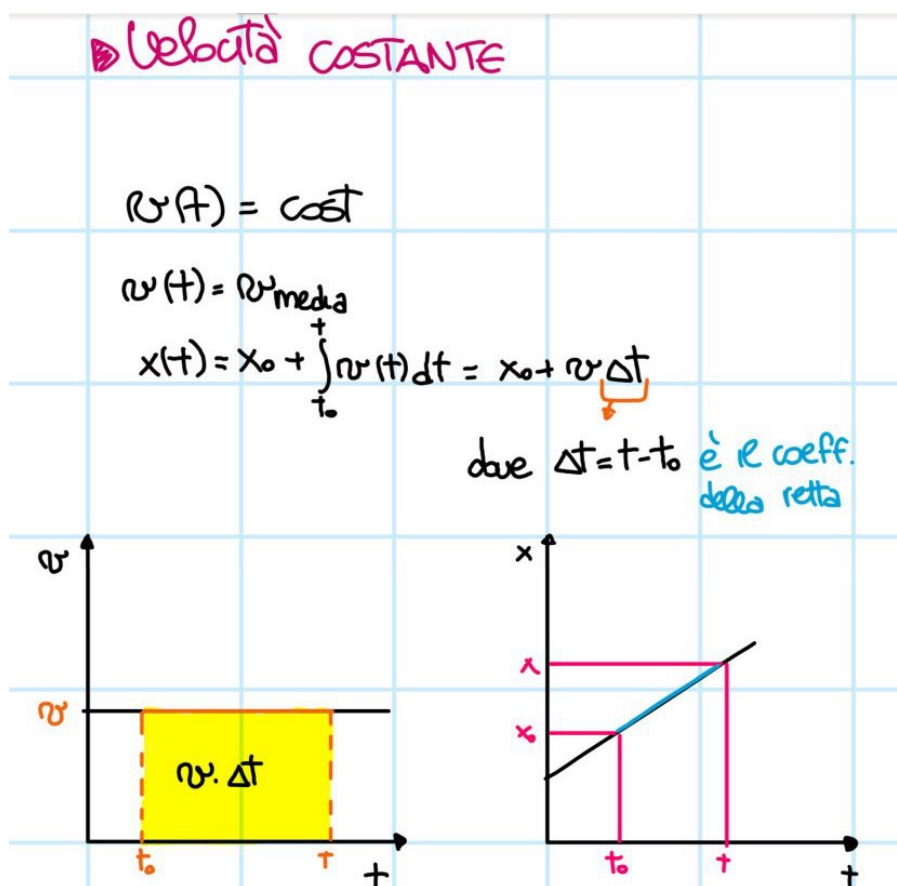 Velocità COSTANTE
v(t) = cost
v(t) = v media
x(t) = x₀ + ∫ₜ₀ᵗ v(t) dt = x₀ + v Δt
dove Δt = t-t₀ è il coeff.
della retta
v
v
v. Δt
t₀ t
t
x
x
x₀
t₀ t
t